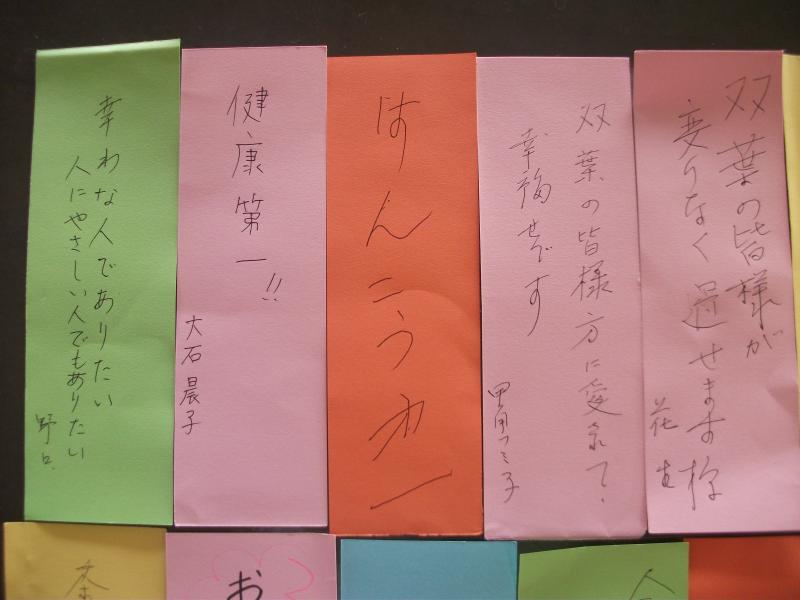 双葉の皆様が
変りなく過せます様
花
双葉の皆様方に愛されて、
幸福せです
フミ子
けんこう第一
健康第一!!
大石晨子
幸わな人でありたい
人にやさしい人でもありたい
野口
お